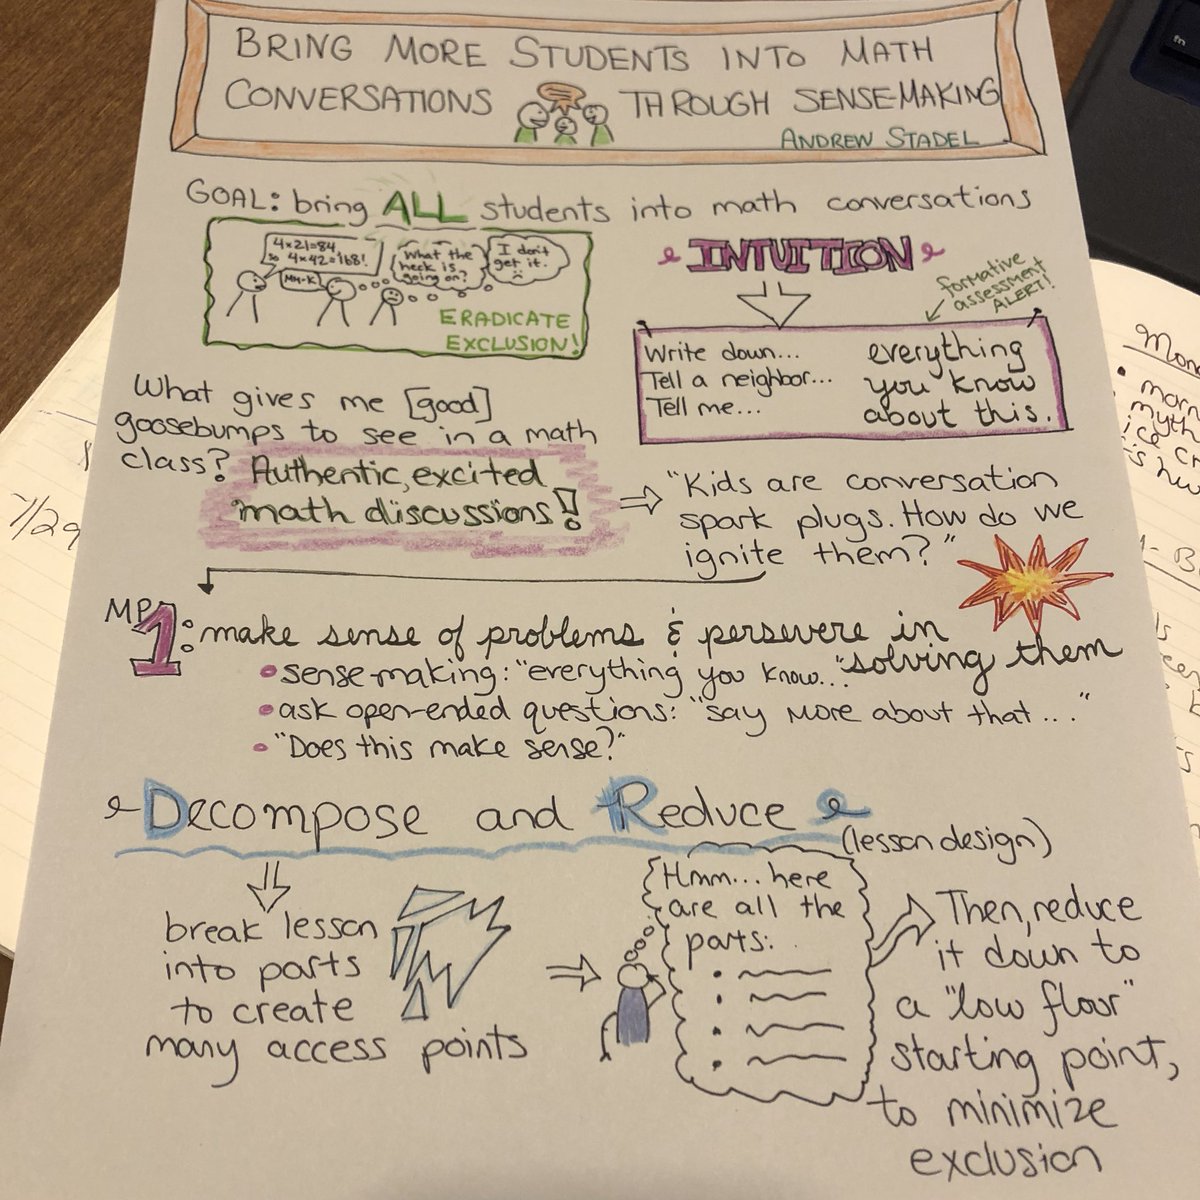 BRING MORE STUDENTS INTO MATH
CONVERSATIONS THROUGH SENSE-MAKING
ANDREW STADEL
GOAL: bring ALL students into math conversations
4×21=84,
so 4×42=168!
MM-K
What the
heck is
going on?
I don't
get it.
ERADICATE
EXCLUSION!
INTUITION
formative
assessment
ALERT!
Write down...
Tell a neighbor...
Tell me...
everything
you know
about this.
What gives me [good]
goosebumps to see in a math
class? Authentic, excited
math discussions!
"Kids are conversation
spark plugs. How do we
ignite them?"
MP1: make sense of problems & persevere in
solving them
• sense-making: "everything you know..."
• ask open-ended questions: "say more about that..."
• "Does this make sense?"
Decompose and Reduce
(lesson design)
break lesson
into parts
to create
many access points
Hmm... here
are all the
parts:
Then, reduce
it down to
a "low floor"
starting point,
to minimize
exclusion
7/29
fn